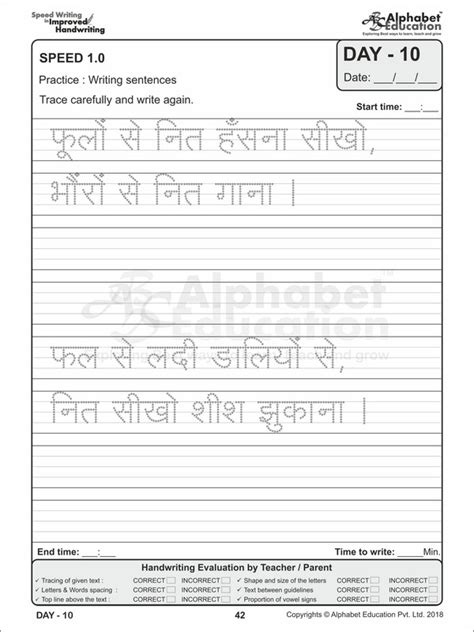 Speed Writing
in Improved
Handwriting
Alphabet™
Education
Exploring Best ways to learn, teach and grow
SPEED 1.0
DAY - 10
Practice : Writing sentences
Date: ___/___/___
Trace carefully and write again.
Start time: ___:___
फूलों से नित हँसना सीखो,
भौंरों से नित गाना |
Alphabet™
Education
फल से लदी डालियों से,
नित सीखो शीश झुकाना |
End time: ___:___
Time to write: _____Min.
Handwriting Evaluation by Teacher / Parent
✓ Tracing of given text : CORRECT INCORRECT ✓ Shape and size of the letters CORRECT INCORRECT
✓ Letters & Words spacing : CORRECT INCORRECT ✓ Text between guidelines CORRECT INCORRECT
✓ Top line above the text : CORRECT INCORRECT ✓ Proportion of vowel signs CORRECT INCORRECT
DAY - 10
42
Copyrights © Alphabet Education Pvt. Ltd. 2018